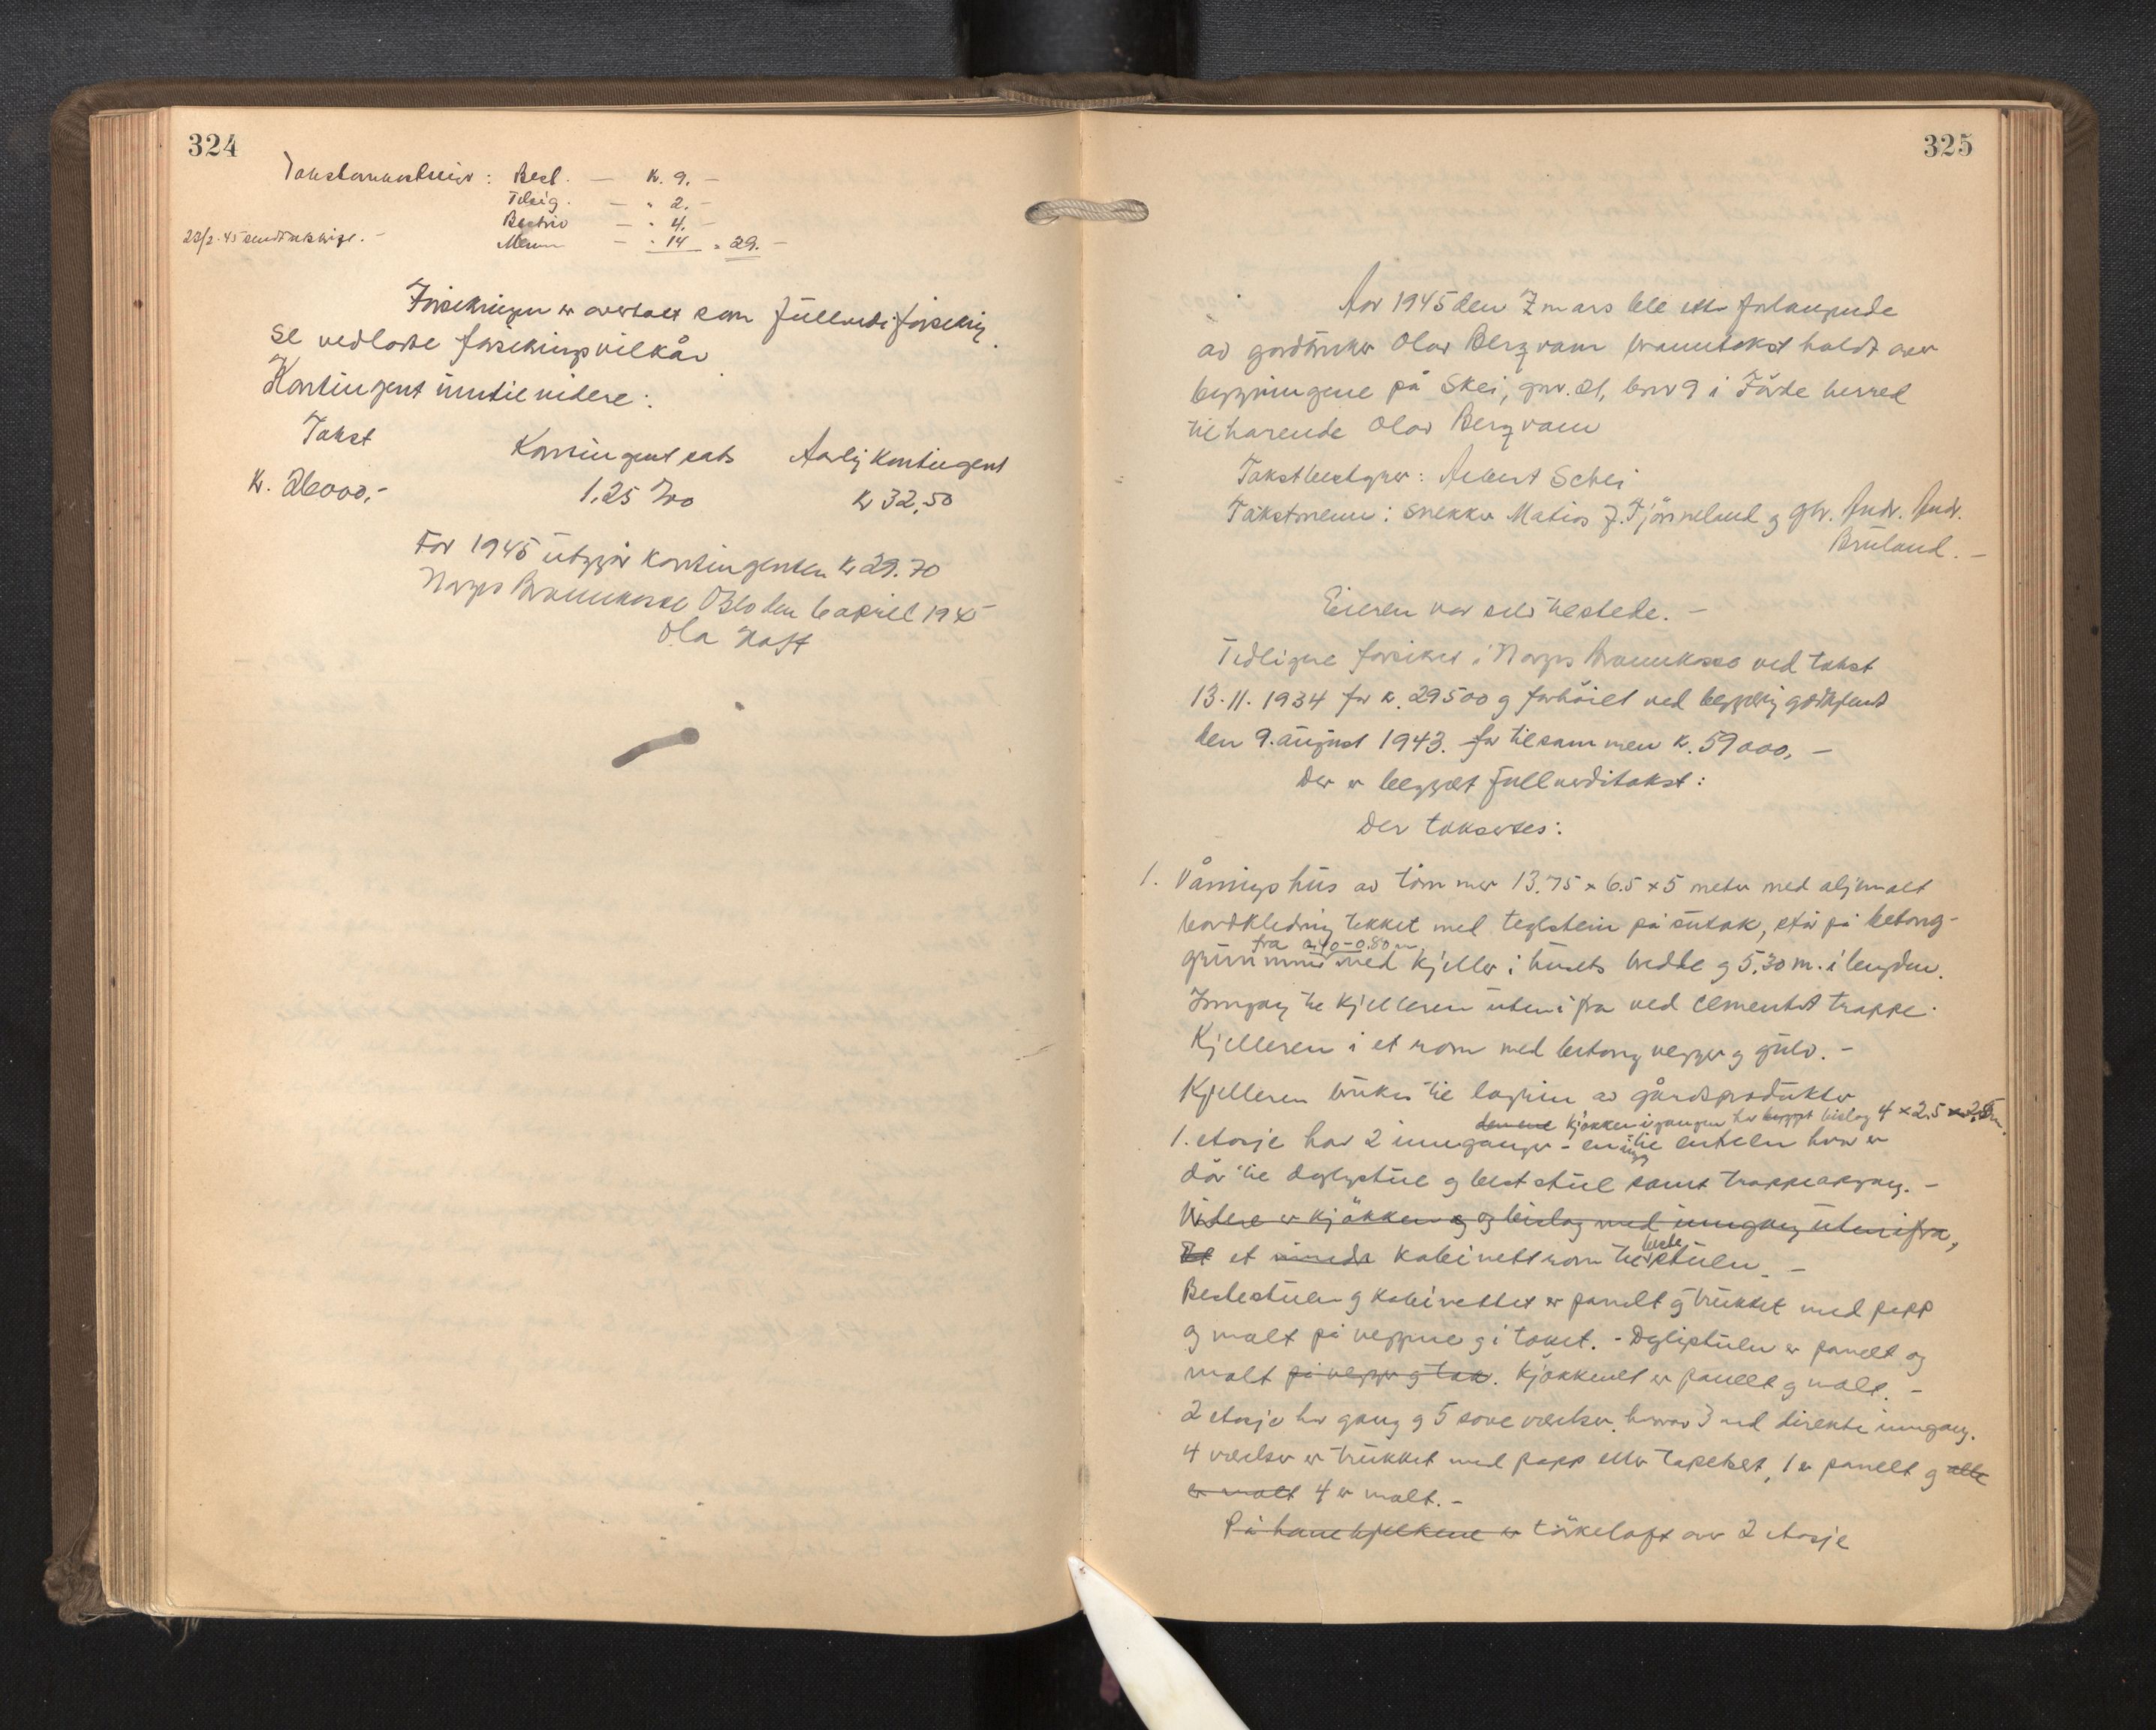 324
Takstomkostninger: Best. — kr. 9.–
Tilsig. — " 2.–
Bestrio — " 4.–
23/2-45 sendt utskrift.– Menn — " 14 = 29.–
Forsikringen er overtatt som fullverdiforsikring.
Se vedlagte forsikringsvilkår
Kontingent inntil videre:
Takst Kontingentsats Aarlig kontingent
Kr. 26000,- 1,25 ‰ kr 32,50
For 1945 utgjør kontingenten kr 29.70
Norges Brannkasse Oslo den 6 april 1945
Ola
325
Aar 1945 den 7 mars ble etter forlangende
av gardbruker Olav Bergvam branntakst holdt over
bygningene på Skei, gnr. 21, bnr 9 i Førde herred
tilhørende Olav Bergvam
Takstbestyrer: Albert Schei
Takstmenn: snekker Matias J. Fjørneland og gbr. Andr. Andr.
Bruland.–
Eieren var selv tilstede.–
Tidligere forsikret i Norges Brannkasse ved takst
13.11.1934 for kr. 29500 og forhøiet ved begjæring godkjent
den 9. august 1943. for tilsammen kr. 59000,–
Der er begjært fullverditakst:
Der takseres:
1. Våningshus av tømmer 13.75 x 6.5 x 5 meter med oljemalt
bordkledning tekket med teglstein på sutak, står på betong-
fra 0,40-0.80 m.
grunnmur med kjeller i husets bredde og 5,30 m. i lengden.
Inngang til kjelleren utenifra ved cementert trappe.
Kjelleren i et rom med betong vegger og gulv.–
Kjelleren brukes til lagring av gårdsprodukter
den ene kjøkkeninngangen har bygget bislag 4 x 2.5 x 2,5 m.
1. etasje har 2 innganger - en til entreen hvor er
dør til daglystue og beststue samt trappeopgang.–
Videre er kjøkken og bislag med inngang utenifra,
Det et mindre kabinettrom til beste stuen.–
Bestestuen og kabinettet er panelt og trukket med papp
og malt på veggene og i taket.- Dagligstuen er panelt og
malt på vegger og tak. Kjøkkenet er panelt og malt.–
2 etasje har gang og 5 soveværelser hvorav 3 med direkte inngang.
4 værelser er trukket med papp eller tapetsert, 1 er panelt og alle
er malt 4 er malt.–
På hanebjelkene er tørkeloft over 2 etasje